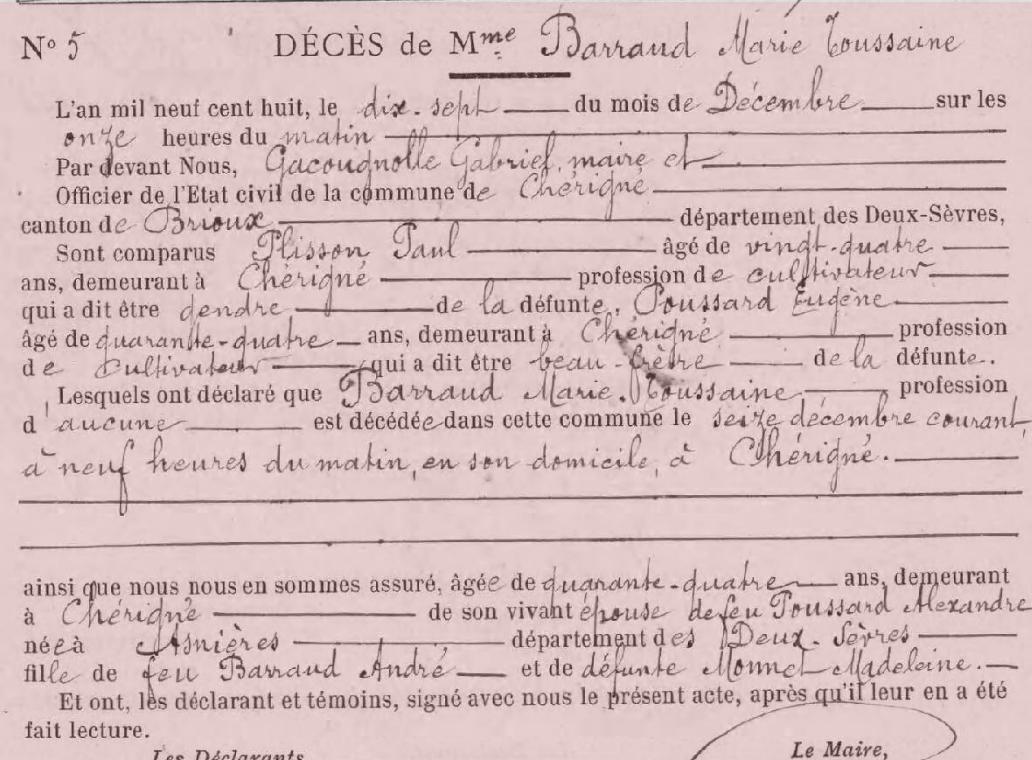 N° 5 DÉCÈS de Mme Barraud Marie Toussaine
L'an mil neuf cent huit, le dix-sept du mois de Décembre sur les
onze heures du matin
Par devant Nous, Gacougnolle Gabriel, maire et
Officier de l'Etat civil de la commune de Chérigné
canton de Brioux département des Deux-Sèvres,
Sont comparus Plisson Paul âgé de vingt-quatre
ans, demeurant à Chérigné profession de cultivateur
qui a dit être gendre de la défunte, Poussard Eugène
âgé de quarante-quatre ans, demeurant à Chérigné profession
de cultivateur qui a dit être beau-frère de la défunte.
Lesquels ont déclaré que Barraud Marie-Toussaine profession
d'aucune est décédée dans cette commune le seize décembre courant,
à neuf heures du matin, en son domicile, à Chérigné.
ainsi que nous nous en sommes assuré, âgée de quarante-quatre ans, demeurant
à Chérigné de son vivant épouse de feu Poussard Alexandre
née à Asnières département des Deux-Sèvres
fille de feu Barraud André et de défunte Monnet Madeleine.
Et ont, les déclarant et témoins, signé avec nous le présent acte, après qu'il leur en a été
fait lecture.
Les Déclarants Le Maire,